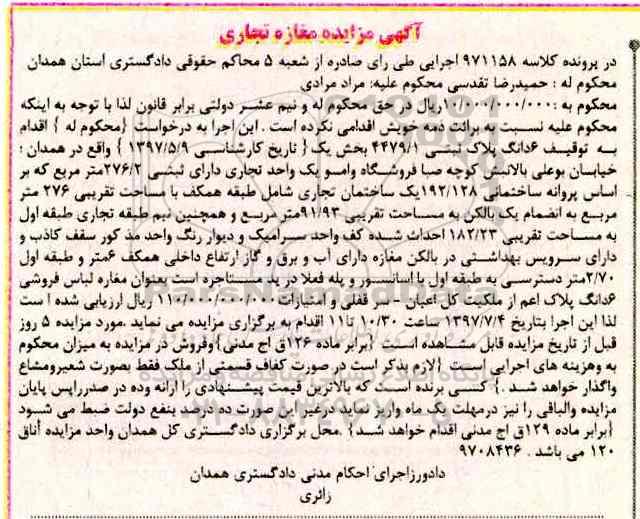 آگهی مزایده مغازه تجاری
در پرونده کلاسه ۹۷۱۱۵۸ اجرایی طی رای صادره از شعبه ۵ محاکم حقوقی دادگستری استان همدان
محکوم له : حمیدرضا تقدسی محکوم علیه: مراد مرادی
محکوم به :۱۰/۰۰۰/۰۰۰/۰۰۰ریال در حق محکوم له و نیم عشر دولتی برابر قانون لذا با توجه به اینکه
محکوم علیه نسبت به برائت ذمه خویش اقدامی نکرده است . این اجرا به درخواست {محکوم له } اقدام
به توقیف ۶دانگ پلاک ثبتی ۴۴۷۹/۱ بخش یک{ تاریخ کارشناسی ۱۳۹۷/۵/۹ } واقع در همدان :
خیابان بوعلی بالاتش کوچه صبا فروشگاه وامو یک واحد تجاری دارای ثبتی ۲۷۶/۲متر مربع که بر
اساس پروانه ساختمانی ۱۹۲/۱۲۸یک ساختمان تجاری شامل طبقه همکف با مساحت تقریبی ۲۷۶ متر
مربع به انضمام یک بالکن به مساحت تقریبی ۹۱/۹۳متر مربع و همچنین نیم طبقه تجاری طبقه اول
به مساحت تقریبی ۱۸۲/۲۳ احداث شده کف واحد سرامیک و دیوار رنگ واحد مذ کور سقف کاذب و
دارای سرویس بهداشتی در بالکن مغازه دارای آب و برق و گاز ارتفاع داخلی همکف ۶متر و طبقه اول
۲/۷۰متر دسترسی به طبقه اول با آسانسور و پله فعلا در ید مستاجره است بعنوان مغازه لباس فروشی
۶دانگ پلاک اعم از ملکیت کل اعیان -سر قفلی و امتیازات ۱۱۰/۰۰۰/۰۰۰/۰۰۰ ریال ارزیابی شده ا ست
لذا این اجرا بتاریخ ۱۳۹۷/۷/۴ ساعت ۱۰/۳۰ تا۱۱ اقدام به برگزاری مزایده می نماید .مورد مزایده ۵ روز
قبل از تاریخ مزایده قابل مشاهده است {برابر ماده ۱۲۶ق اج مدنی}وفروش در مزایده به میزان محکوم
به وهزینه های اجرایی است {لازم بذکر است در صورت کفاف قسمتی از ملک فقط بصورت شعیرومشاع
واگذار خواهد شد .} کسی برنده است که بالاترین قیمت پیشنهادی را ارائه وده در صدرراپس پایان
مزایده والباقی را نیز درمهلت یک ماه واریز نماید درغیر این صورت ده درصد بنفع دولت ضبط می شود
{برابر ماده ۱۲۹ق اج مدنی اقدام خواهد شد} .محل برگزاری دادگستری کل همدان واحد مزایده أتاق
۱۲۰ می باشد . ۹۷۰۸۴۳۶
دادورزاجرای احکام مدنی دادگستری همدان
زائری